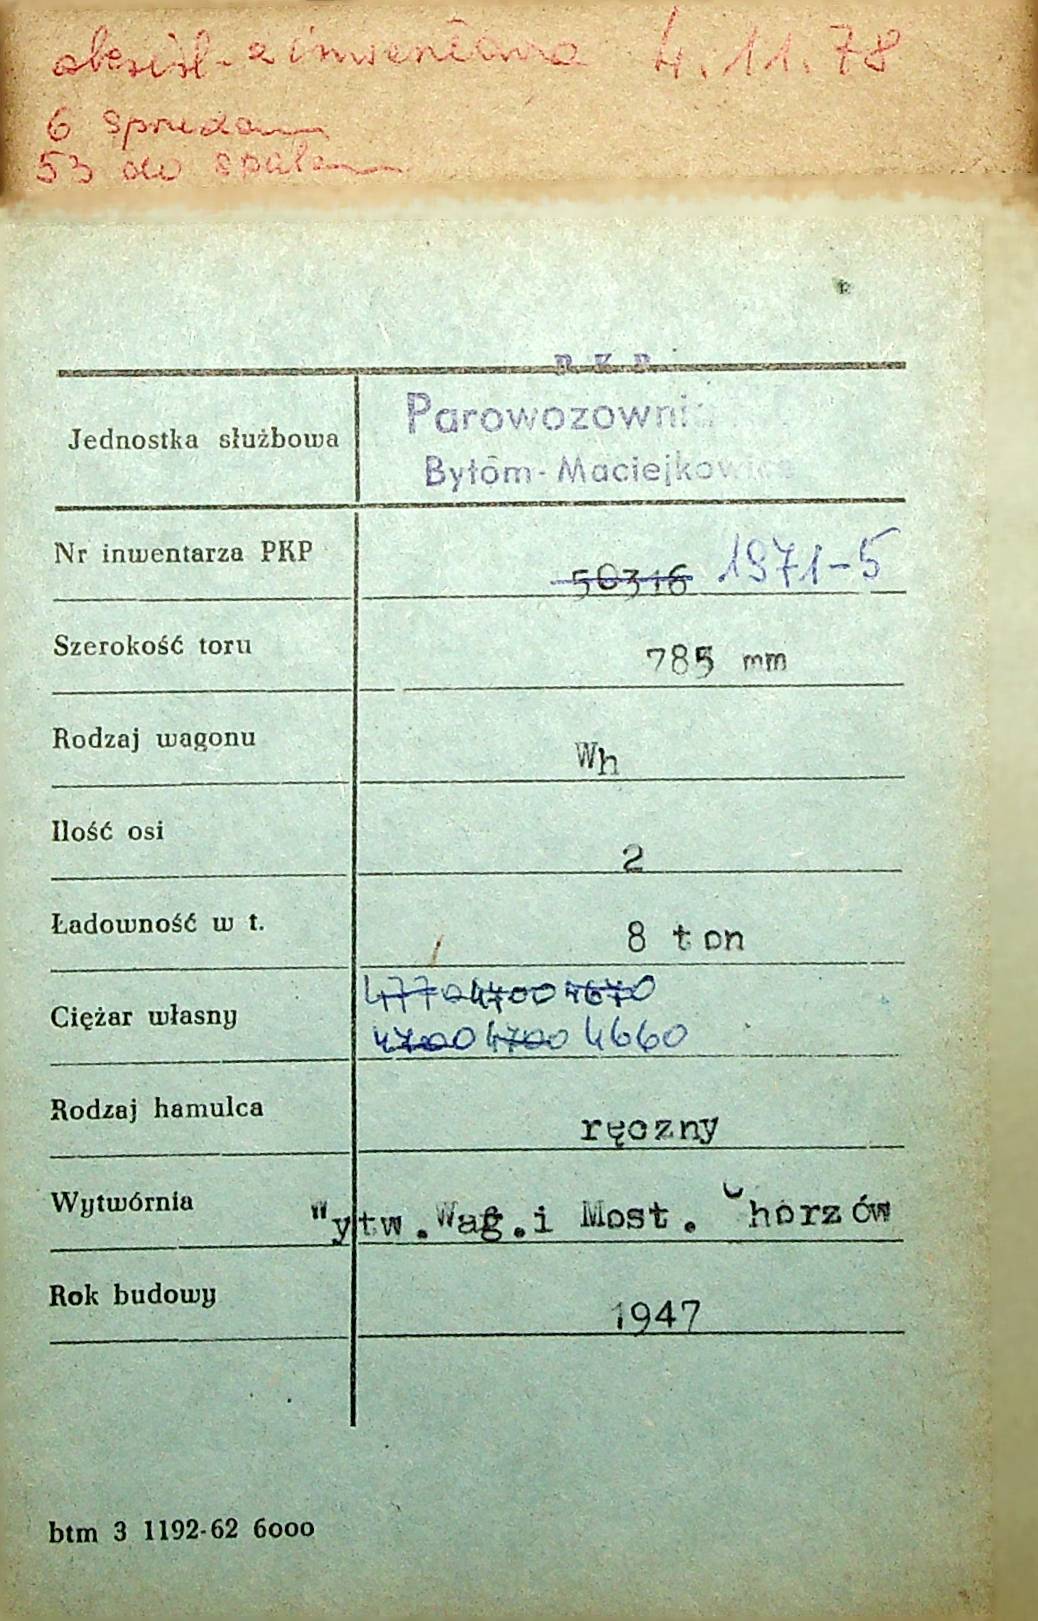 inwentarza 4.11.78
6 sprzedano
53 do spalen
P.K.P.
Jednostka służbowa Parowozownia
Bytom-Maciejkowice
Nr inwentarza PKP 50316 1971-5
Szerokość toru 785 mm
Rodzaj wagonu Wh
Ilość osi 2
Ładowność w t. 8 ton
4770 4700 4670
Ciężar własny 4700 4700 4660
Rodzaj hamulca ręczny
Wytwórnia Wytw.Wag.i Most. Chorzów
Rok budowy 1947
btm 3 1192-62 6000